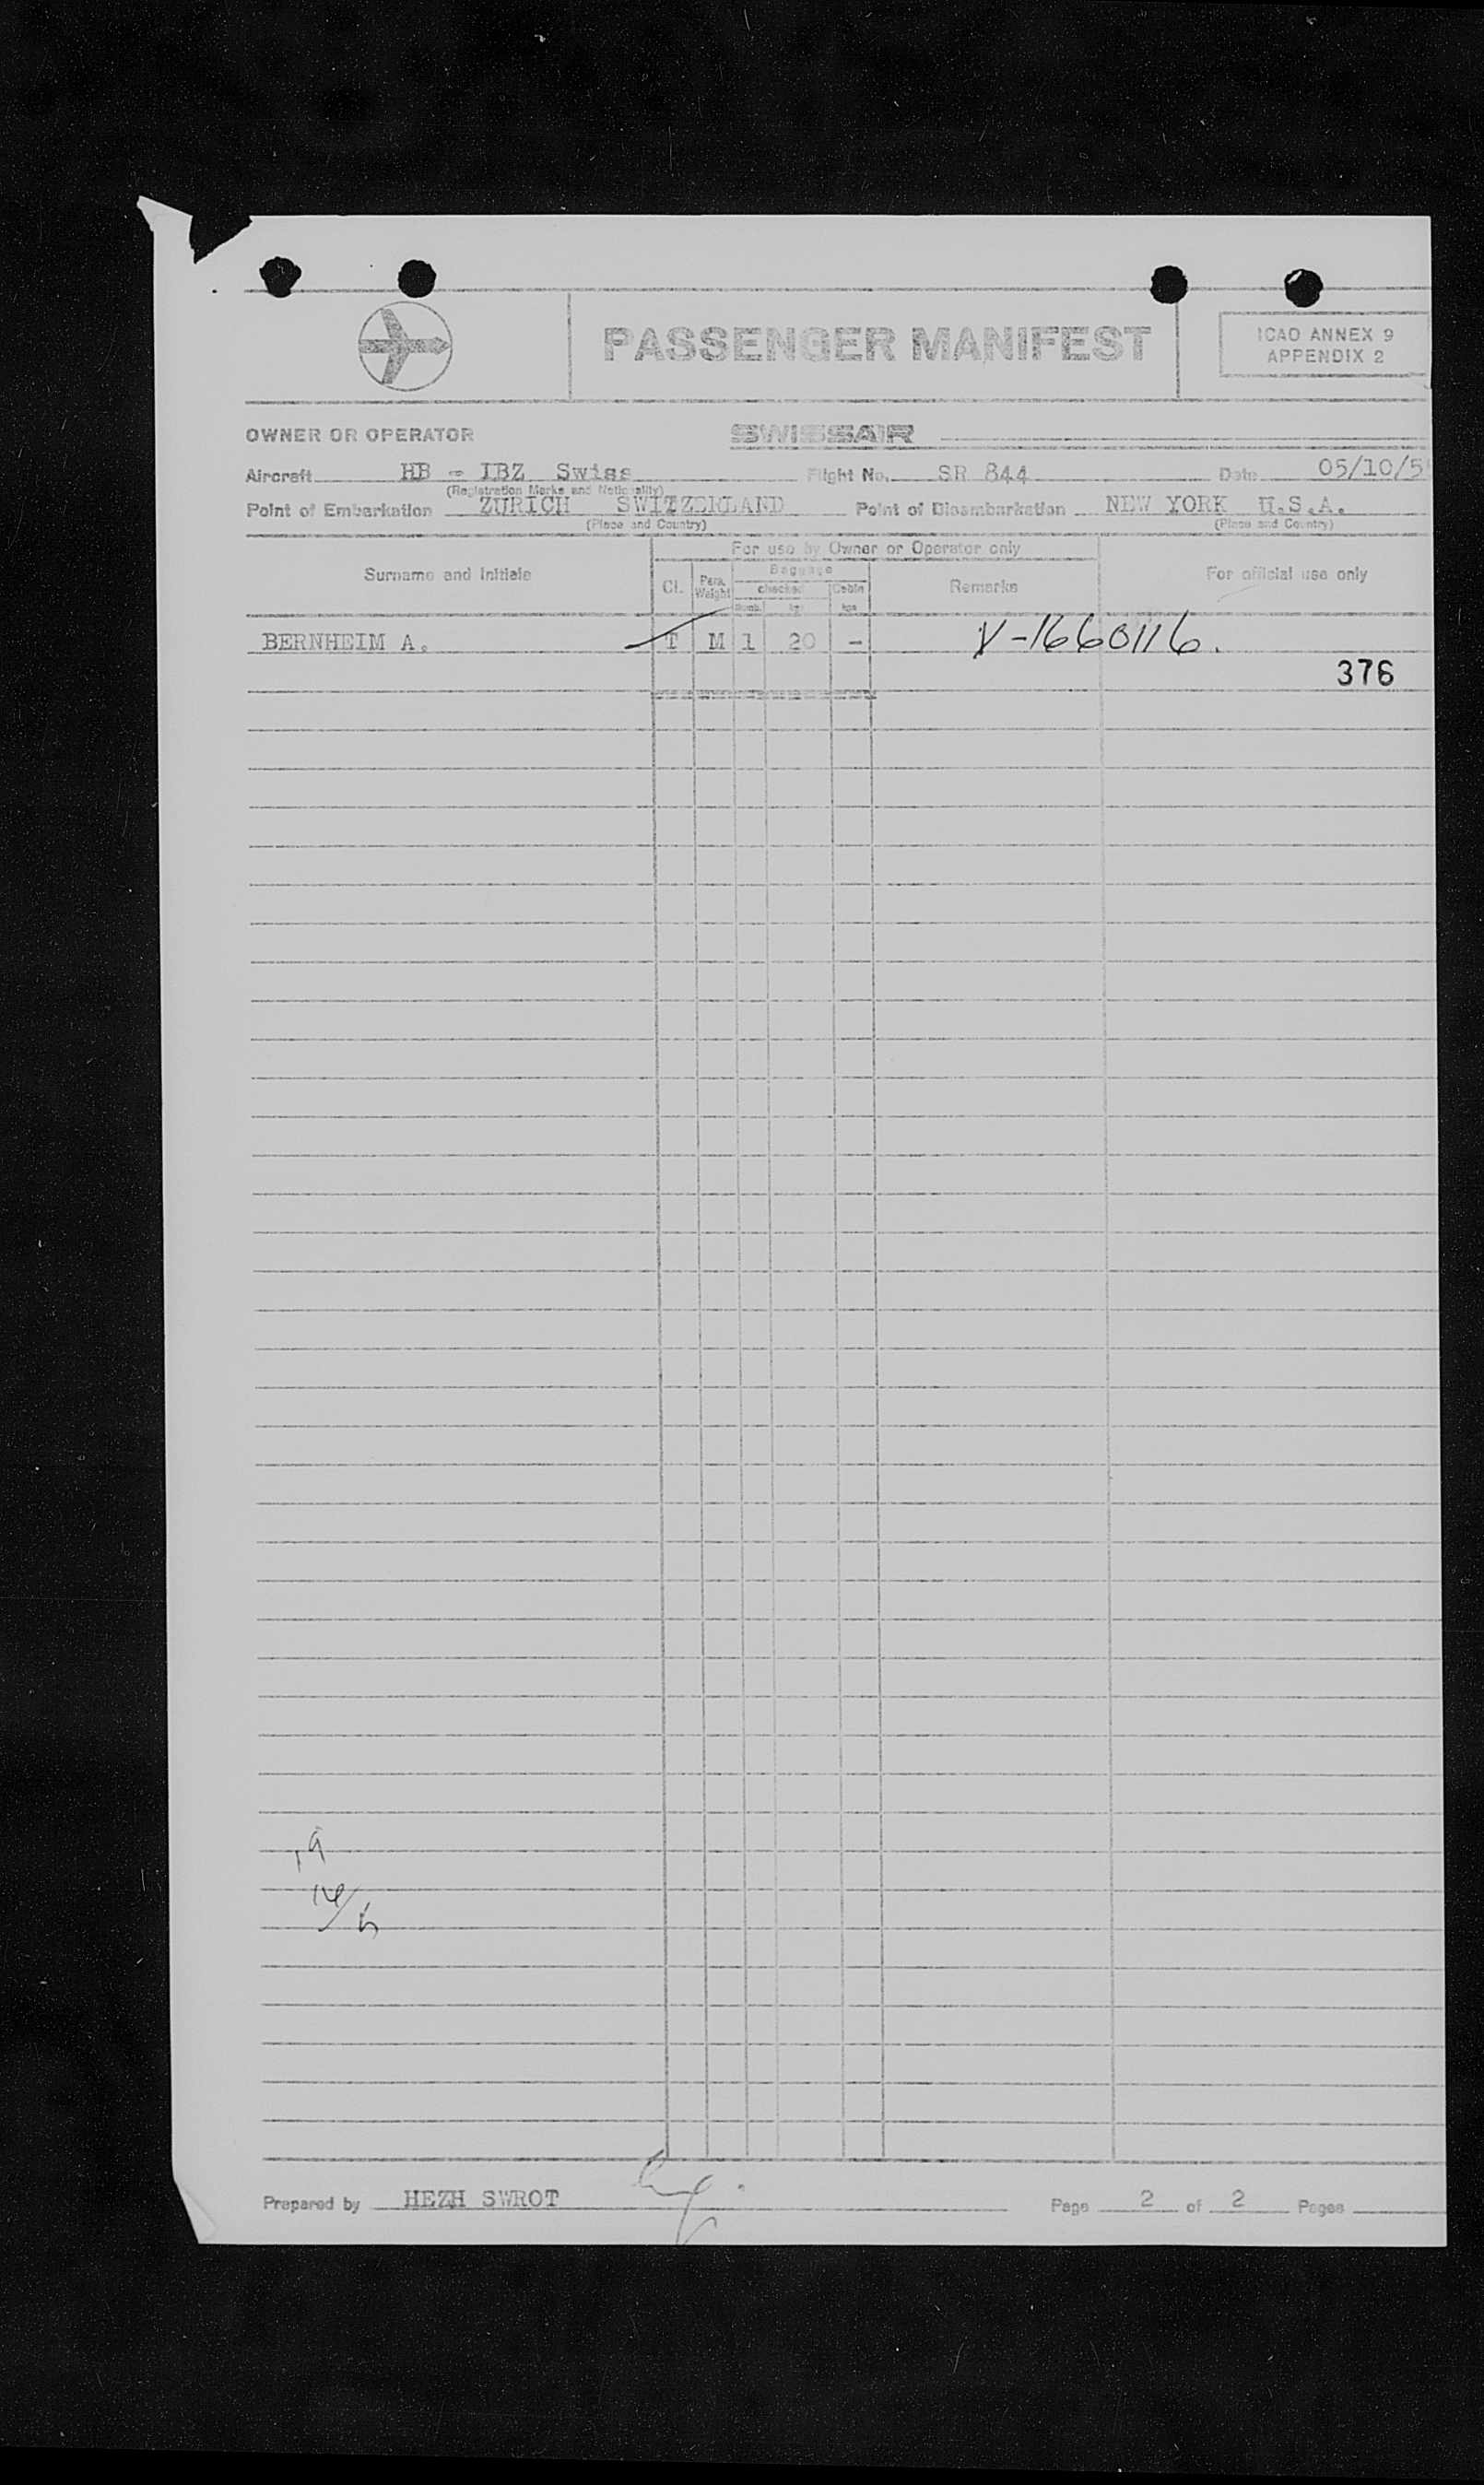 PASSENGER MANIFEST
ICAO ANNEX 9
APPENDIX 2
OWNER OR OPERATOR SWISSAIR
Aircraft HB - IBZ Swiss Flight No. SR 844 Date 05/10/5
(Registration Marks and Nationality)
Point of Embarkation ZURICH SWITZERLAND Point of Disembarkation NEW YORK U.S.A.
(Place and Country) (Place and Country)
For use by Owner or Operator only
Surname and Initials Cl. Pers. Weight Baggage Remarks For official use only
checked Cabin
Numb. kgs kgs
BERNHEIM A. T M 1 20 - V-1660116.
376
19
14/5
Prepared by HEZH SWROT Page 2 of 2 Pages